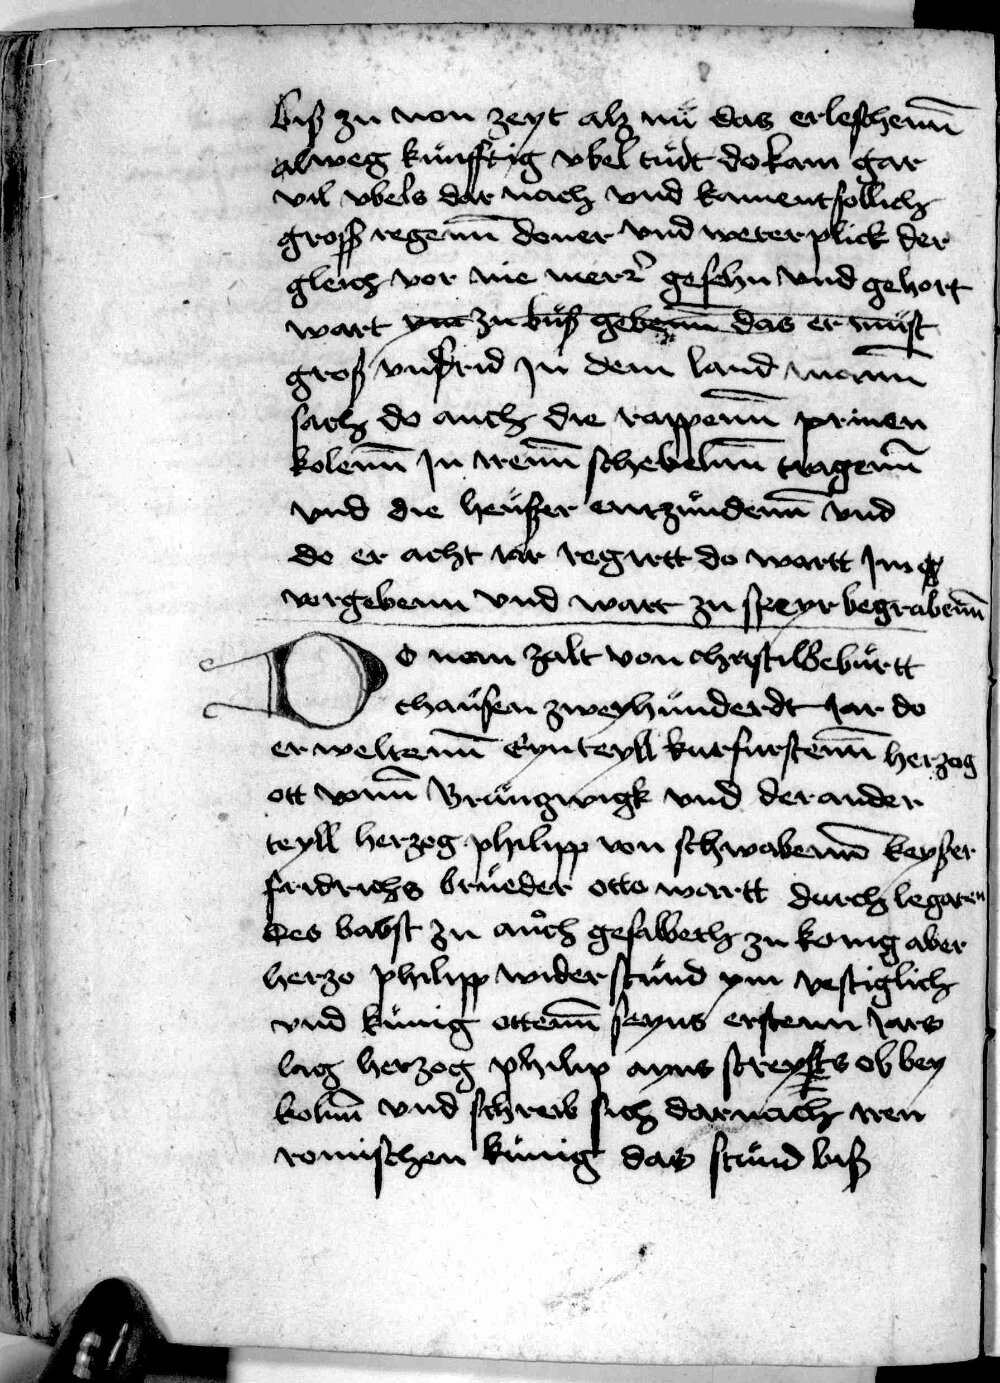 biß zu non zeyt alz nu das erleschenn
alweg kunfftig vbel tudt do kam gar
vil vbels dar nach vnd kament sollich
groß regenn doner vnd weterplick der
gleich vor nie merr gesehn vnd gehort
wart vnt zu buß gebenn das er must
groß vnfrid in dem land
sach do auch die rappenn prinen
kolenn in irenn schebelnn tragenn
vnd die heußer entzundenn vnd
do er acht iar regirtt do wartt im
vergebenn vnd wart zu speyr begrabenn
Do man zalt von christi geburtt
thausen zweyhunderdt Jar do
erweltenn eyn teyll kurfurstenn herzog
ott vonn Braunzwigk vnd der ander
teyll herzog philipp von schwabenn keyßer
fridrichs brueder otto wartt durch legaten
des babst zu auch gesalbeth zu konig aber
herzo philipp widerstund ym vestiglich
vnd kunig ottenn seyns erstenn Jars
lag herzog philip ayns streyts ob bey
kolnn vnd schreib sich darnach iren
romischen kunig das stund biß